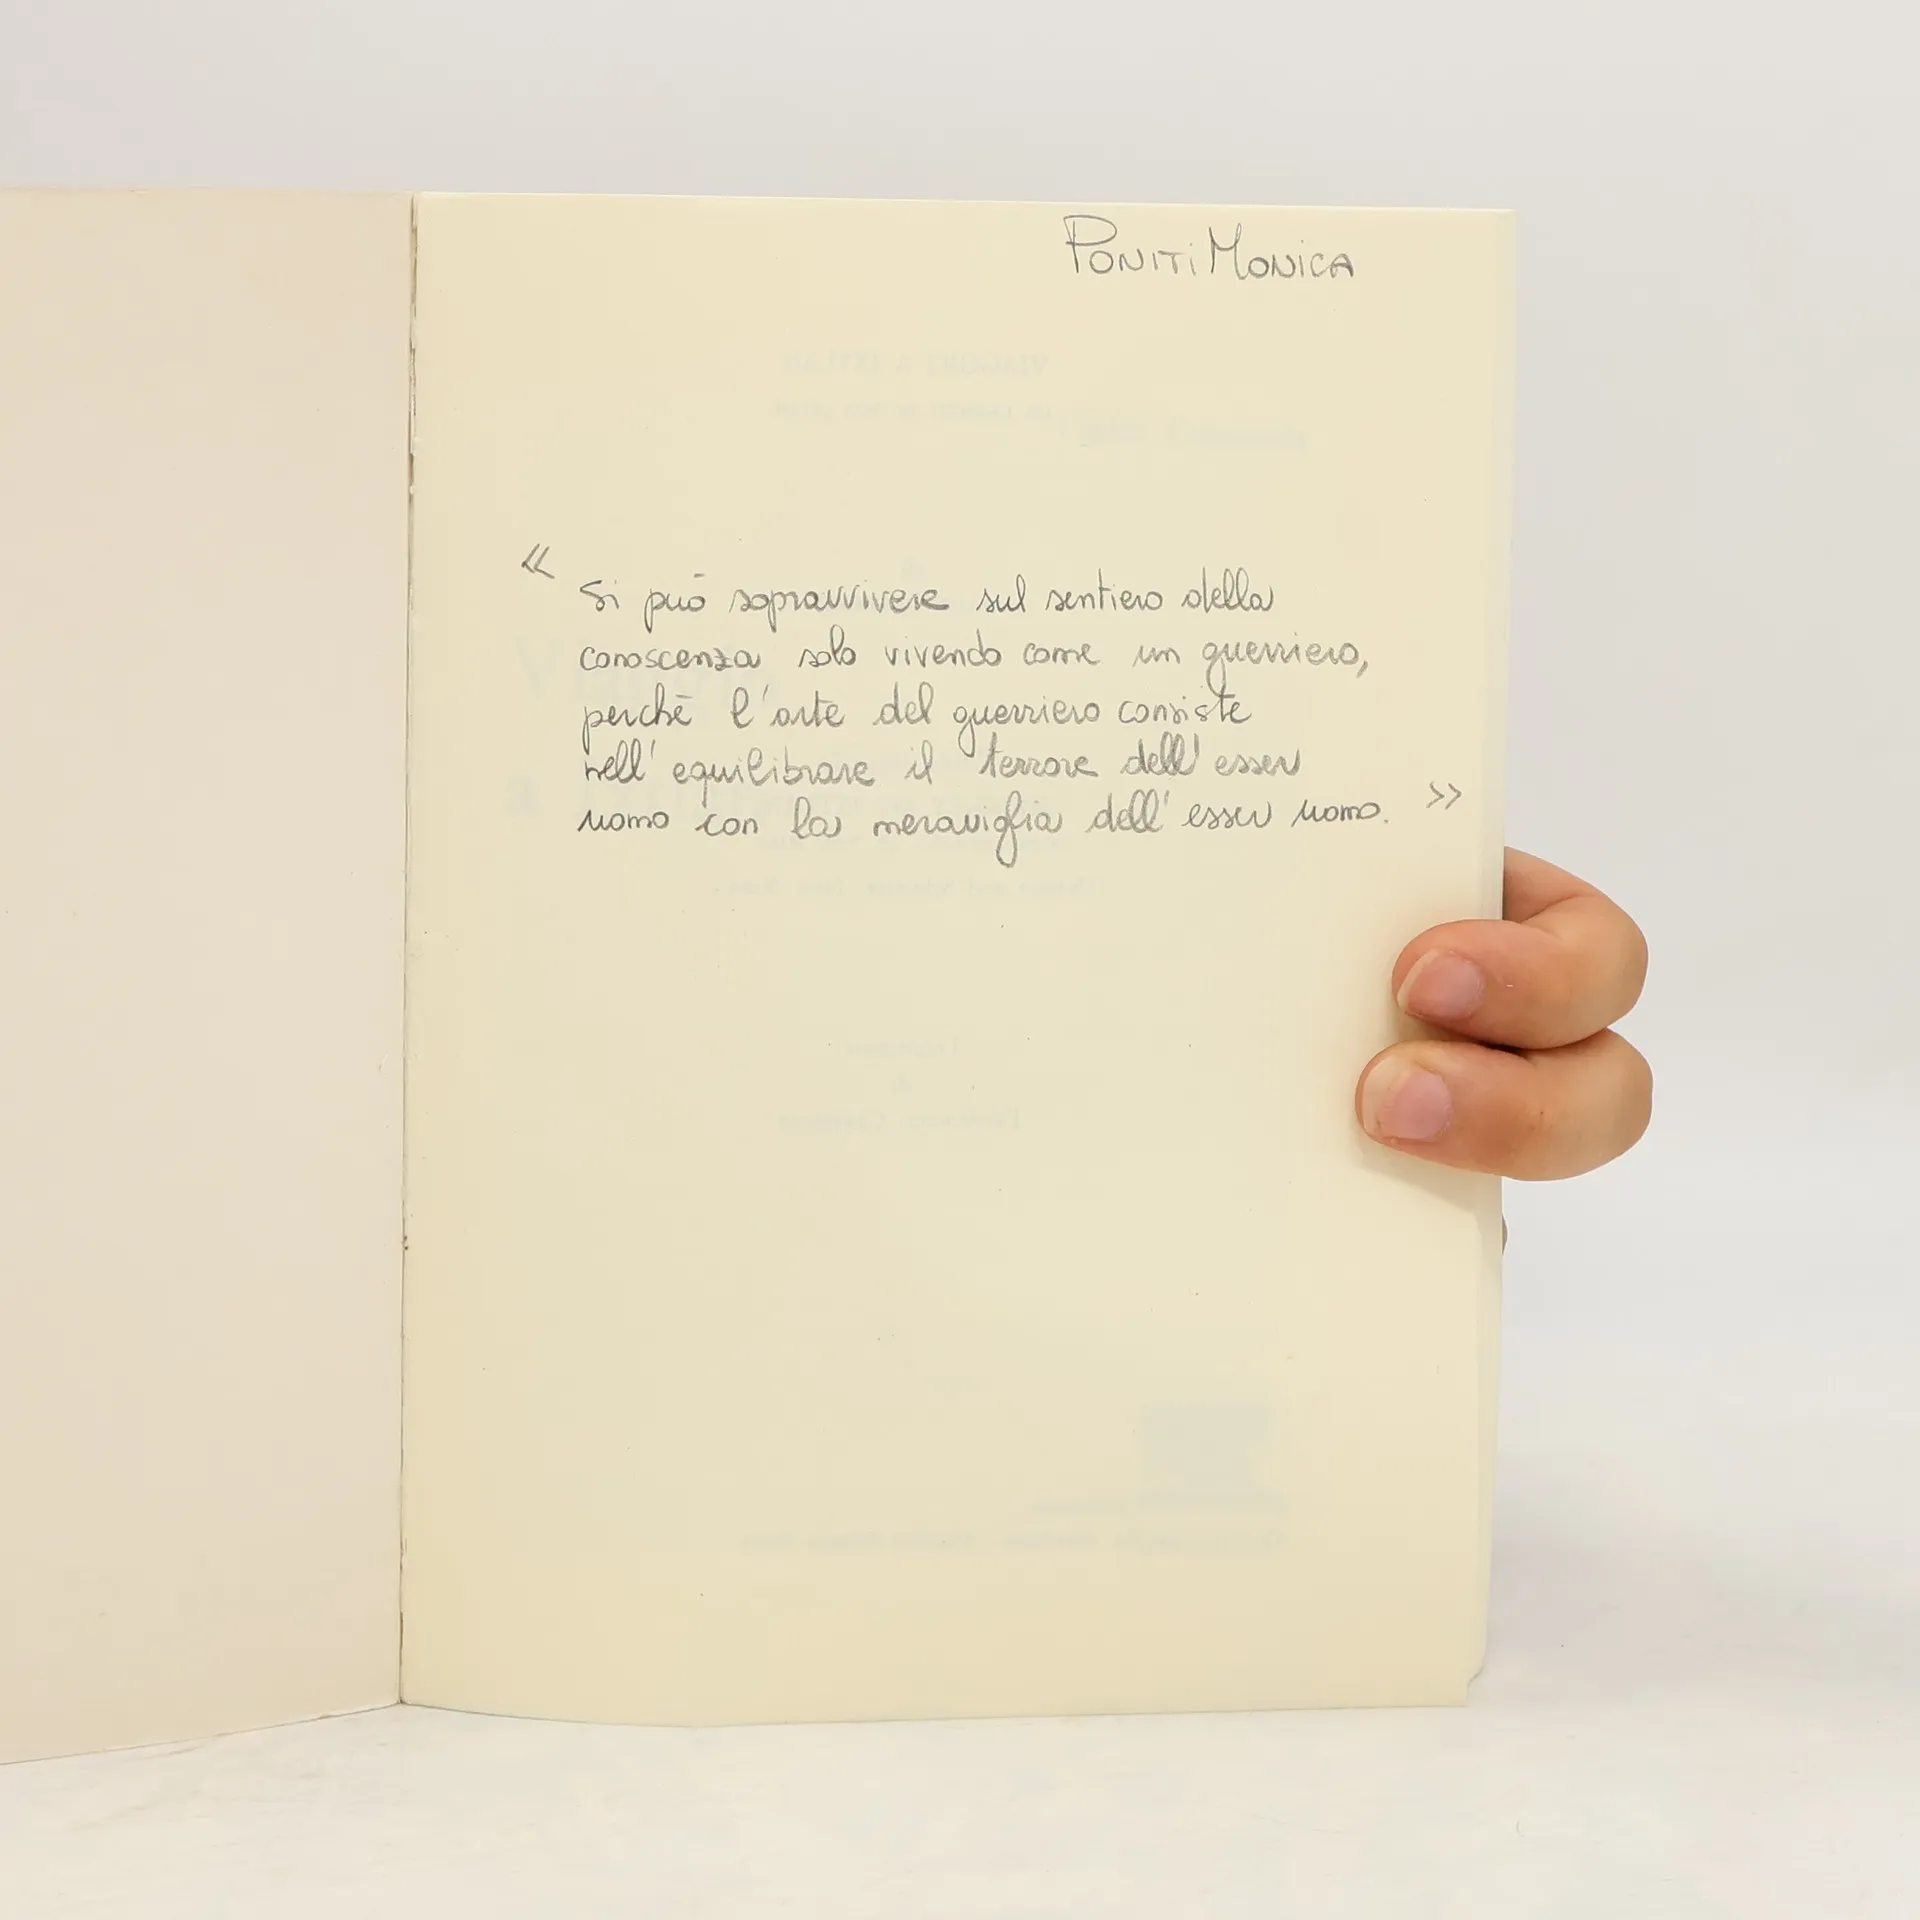 PONITI MONICA
«
Si può sopravvivere sul sentiero della
conoscenza solo vivendo come un guerriero,
perchè l'arte del guerriero consiste
nell' equilibrare il terrore dell' esser
uomo con la meraviglia dell' esser uomo. »